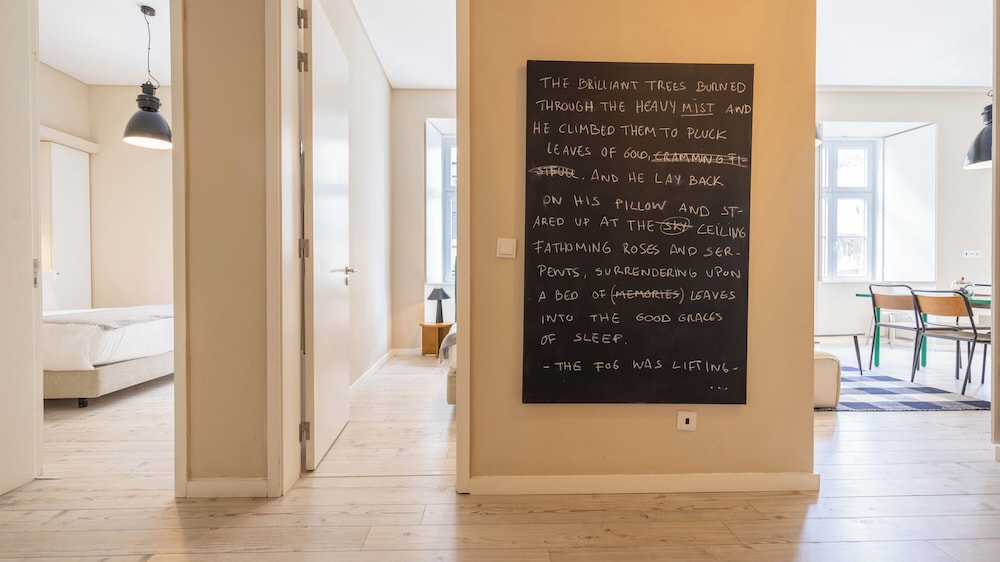 THE BRILLIANT TREES BURNED
THROUGH THE HEAVY MIST AND
HE CLIMBED THEM TO PLUCK
LEAVES OF GOLD, CRAMMING TI
STFULL. AND HE LAY BACK
ON HIS PILLOW AND ST-
ARED UP AT THE SKY CEILING
FATHOMING ROSES AND SER-
PENTS, SURRENDERING UPON
A BED OF (MEMORIES) LEAVES
INTO THE GOOD GRACES
OF SLEEP.
- THE FOG WAS LIFTING -
...